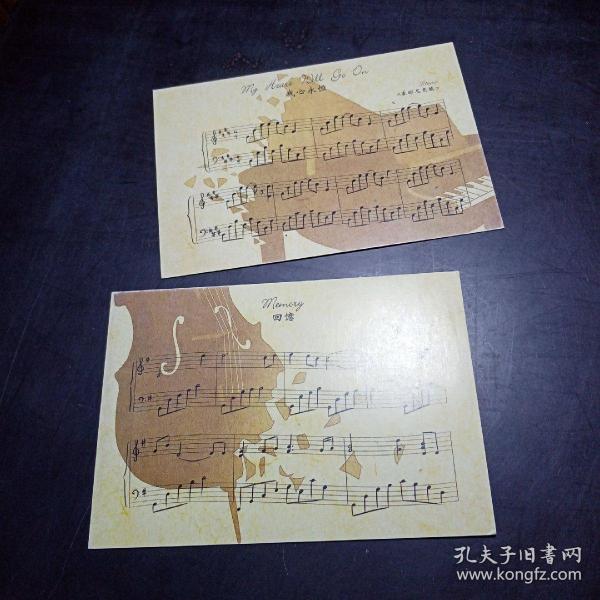 My Heart Will Go On
我心永恒
Memory
回憶
孔夫子旧書网
www.kongfz.com